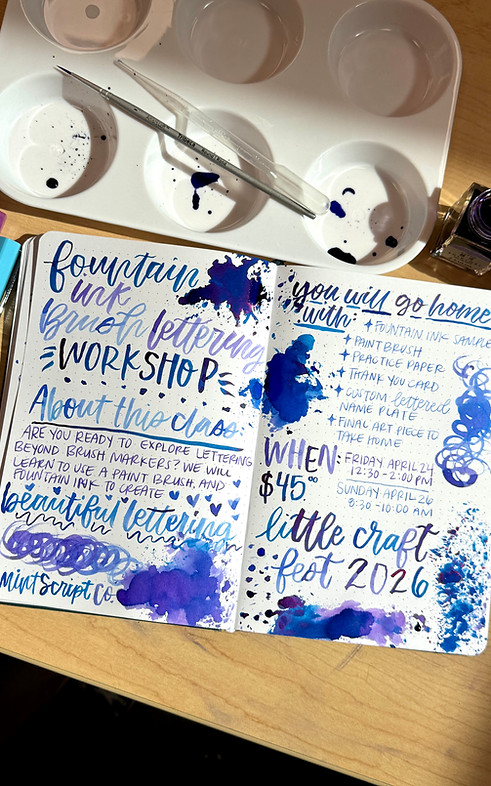 fountain
ink
Brush lettering
WORKSHOP
About this class:
ARE YOU READY TO EXPLORE LETTERING
BEYOND BRUSH MARKERS? WE WILL
LEARN TO USE A PAINT BRUSH, AND
FOUNTAIN INK TO CREATE
beautiful lettering
MintScript Co.
you will go home
with:
FOUNTAIN INK SAMPLE
PAINT BRUSH
PRACTICE PAPER
THANK YOU CARD
CUSTOM lettered
NAME PLATE
FINAL ART PIECE TO
TAKE HOME
WHEN: FRIDAY APRIL 24
12:30-2:00 PM
$45.00
SUNDAY APRIL 26
8:30-10:00 AM
little craft
fest 2026